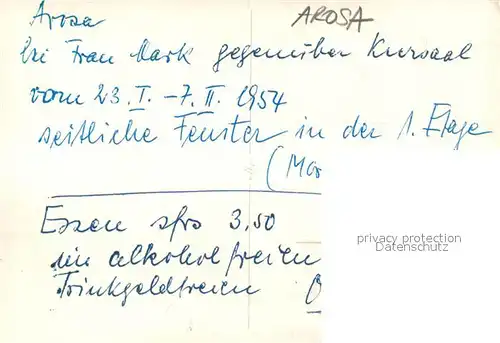 Arosa
AROSA
bei Frau Mark gegenüber Kursaal
vom 23. I. – 7. II. 1954
seitliche Fenster in der 1. Etage
(Mor
Essen sfrs 3,50
im alkoholfreien
Trinkgeldfreien
privacy protection
Datenschutz